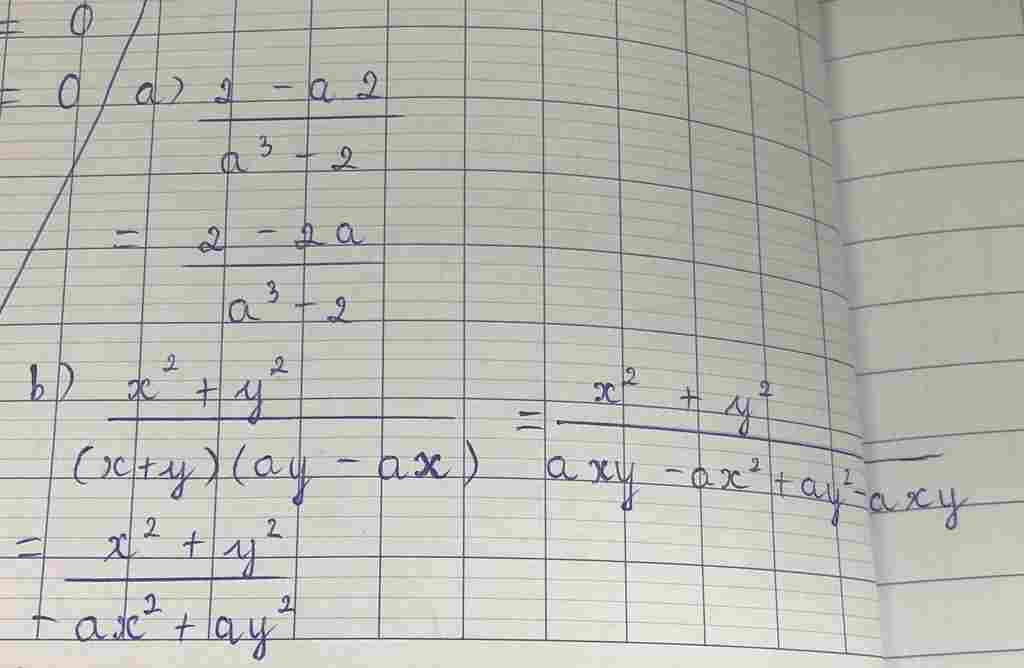 = 0
= 0 a) \frac{2 - a 2}{a^3 - 2}
= \frac{2 - 2a}{a^3 - 2}
b) \frac{x^2 + y^2}{(x+y)(ay - ax)} = \frac{x^2 + y^2}{axy - ax^2 + ay^2 - axy}
= \frac{x^2 + y^2}{- ax^2 + ay^2}